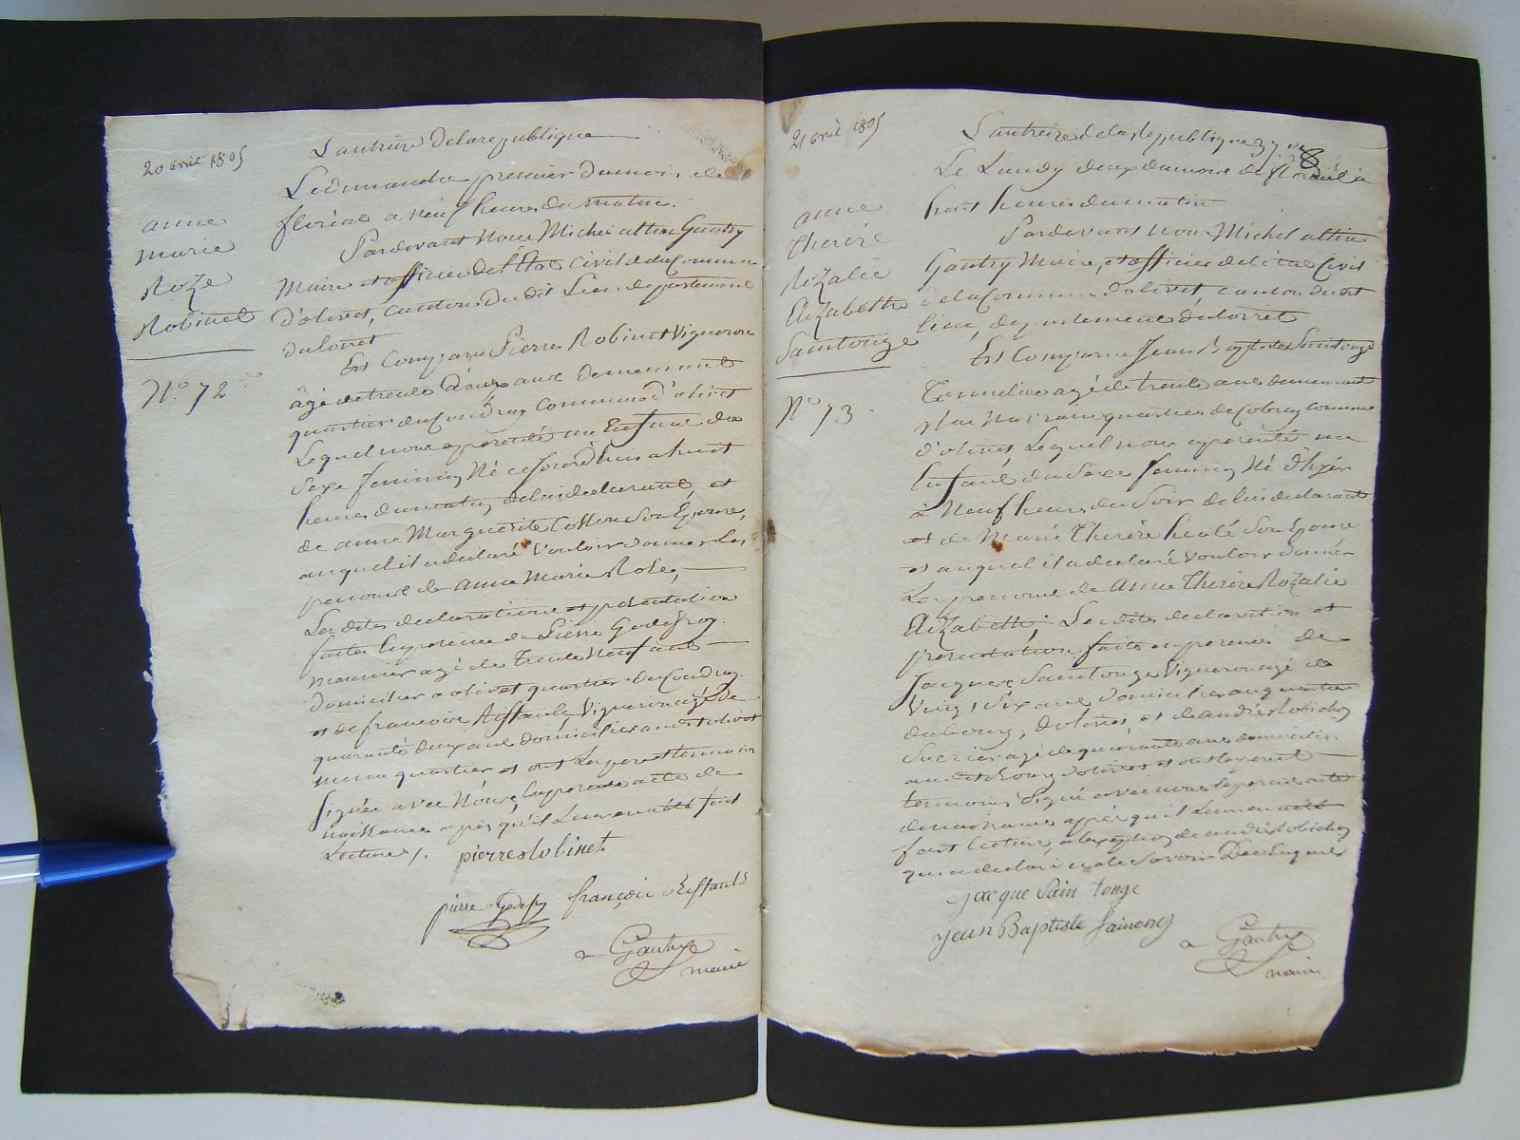 20 avril 1805
anne
marie
Roze
Robinet
N.º 72
L'an treize de la republique
Le dimanche premier du mois de
floréal a neuf heures du matin.
Pardevant Nous Michel altin Gautry
Maire et officier de l'Etat Civil de du Commune
d'olivet, canton du dit Lieu departement
du loiret
Est Comparu Pierre Robinet Vigneron
âgé de trente deux ans demeurant
quartier du Coudray commune d'olivet
Lequel nous a presenté un Enfant du
Sexe feminin Né ce jourd'huis a huit
heures du matin de lui declarant et
de anne Marguerite Son Epouse,
auquel il a declaré Vouloir donner les
prenoms de anne Marie Roze,
Les dites declarations et presentation
faites En presence de Pierre Godefroy
agé de trente Neuf ans
domicilier a olivet quartier du Coudray
et de francoise Vigneron agé de
quarante deux ans domicilier audit olivet
meme quartier et ont Les pere et temoins
Signés avec Nous Le present acte de
naissance apres qu'il Leur en a été fait
Lecture /.
pierre Robinet
pierre Godefroy françois
a Gautry
maire
21 avril 1805
anne
therese
Rozalie
Elizabeth
Saintonge
Nº 73
8
L'an treize de la Republique
Le Lundy deux du mois de floréal à
huit heures du matin
Pardevant nous Michel altin
Gautry Maire, et officier de l'etat Civil
de la Commune d'olivet, canton du dit
lieu, departement du loiret
Est Comparu Jean Baptiste Saintonge
Tonnelier agé de trente ans demeurant
quartier de commune
d'olivet, Lequel nous a presenté un
Enfant du Sexe feminin Né d'hyer
à Neuf heures du Soir de lui declarant
et de Marie Therese Son Epouse
et auquel il a declaré Vouloir donner
Les prenoms de anne Therese Rozalie
Elizabeth; Les dites declaration et
presentation faites en presence de
Jacques Saintonge Vigneron agé de
Vingt Six ans, domicilier au quartier
du bourg, d'olivet et de andré Robichon
agé de quarante ans demeurant
au dit bourg d'olivet et ont Les pere et
temoins Signé avec nous Le present acte
de naissance apres qu'il Leur en a été
fait lecture, a l'exception de andré Robichon
qui a declaré ne le Savoir De ce Enquis
jacque Sain tonge
jean Baptiste Saintong
a Gautry
maire